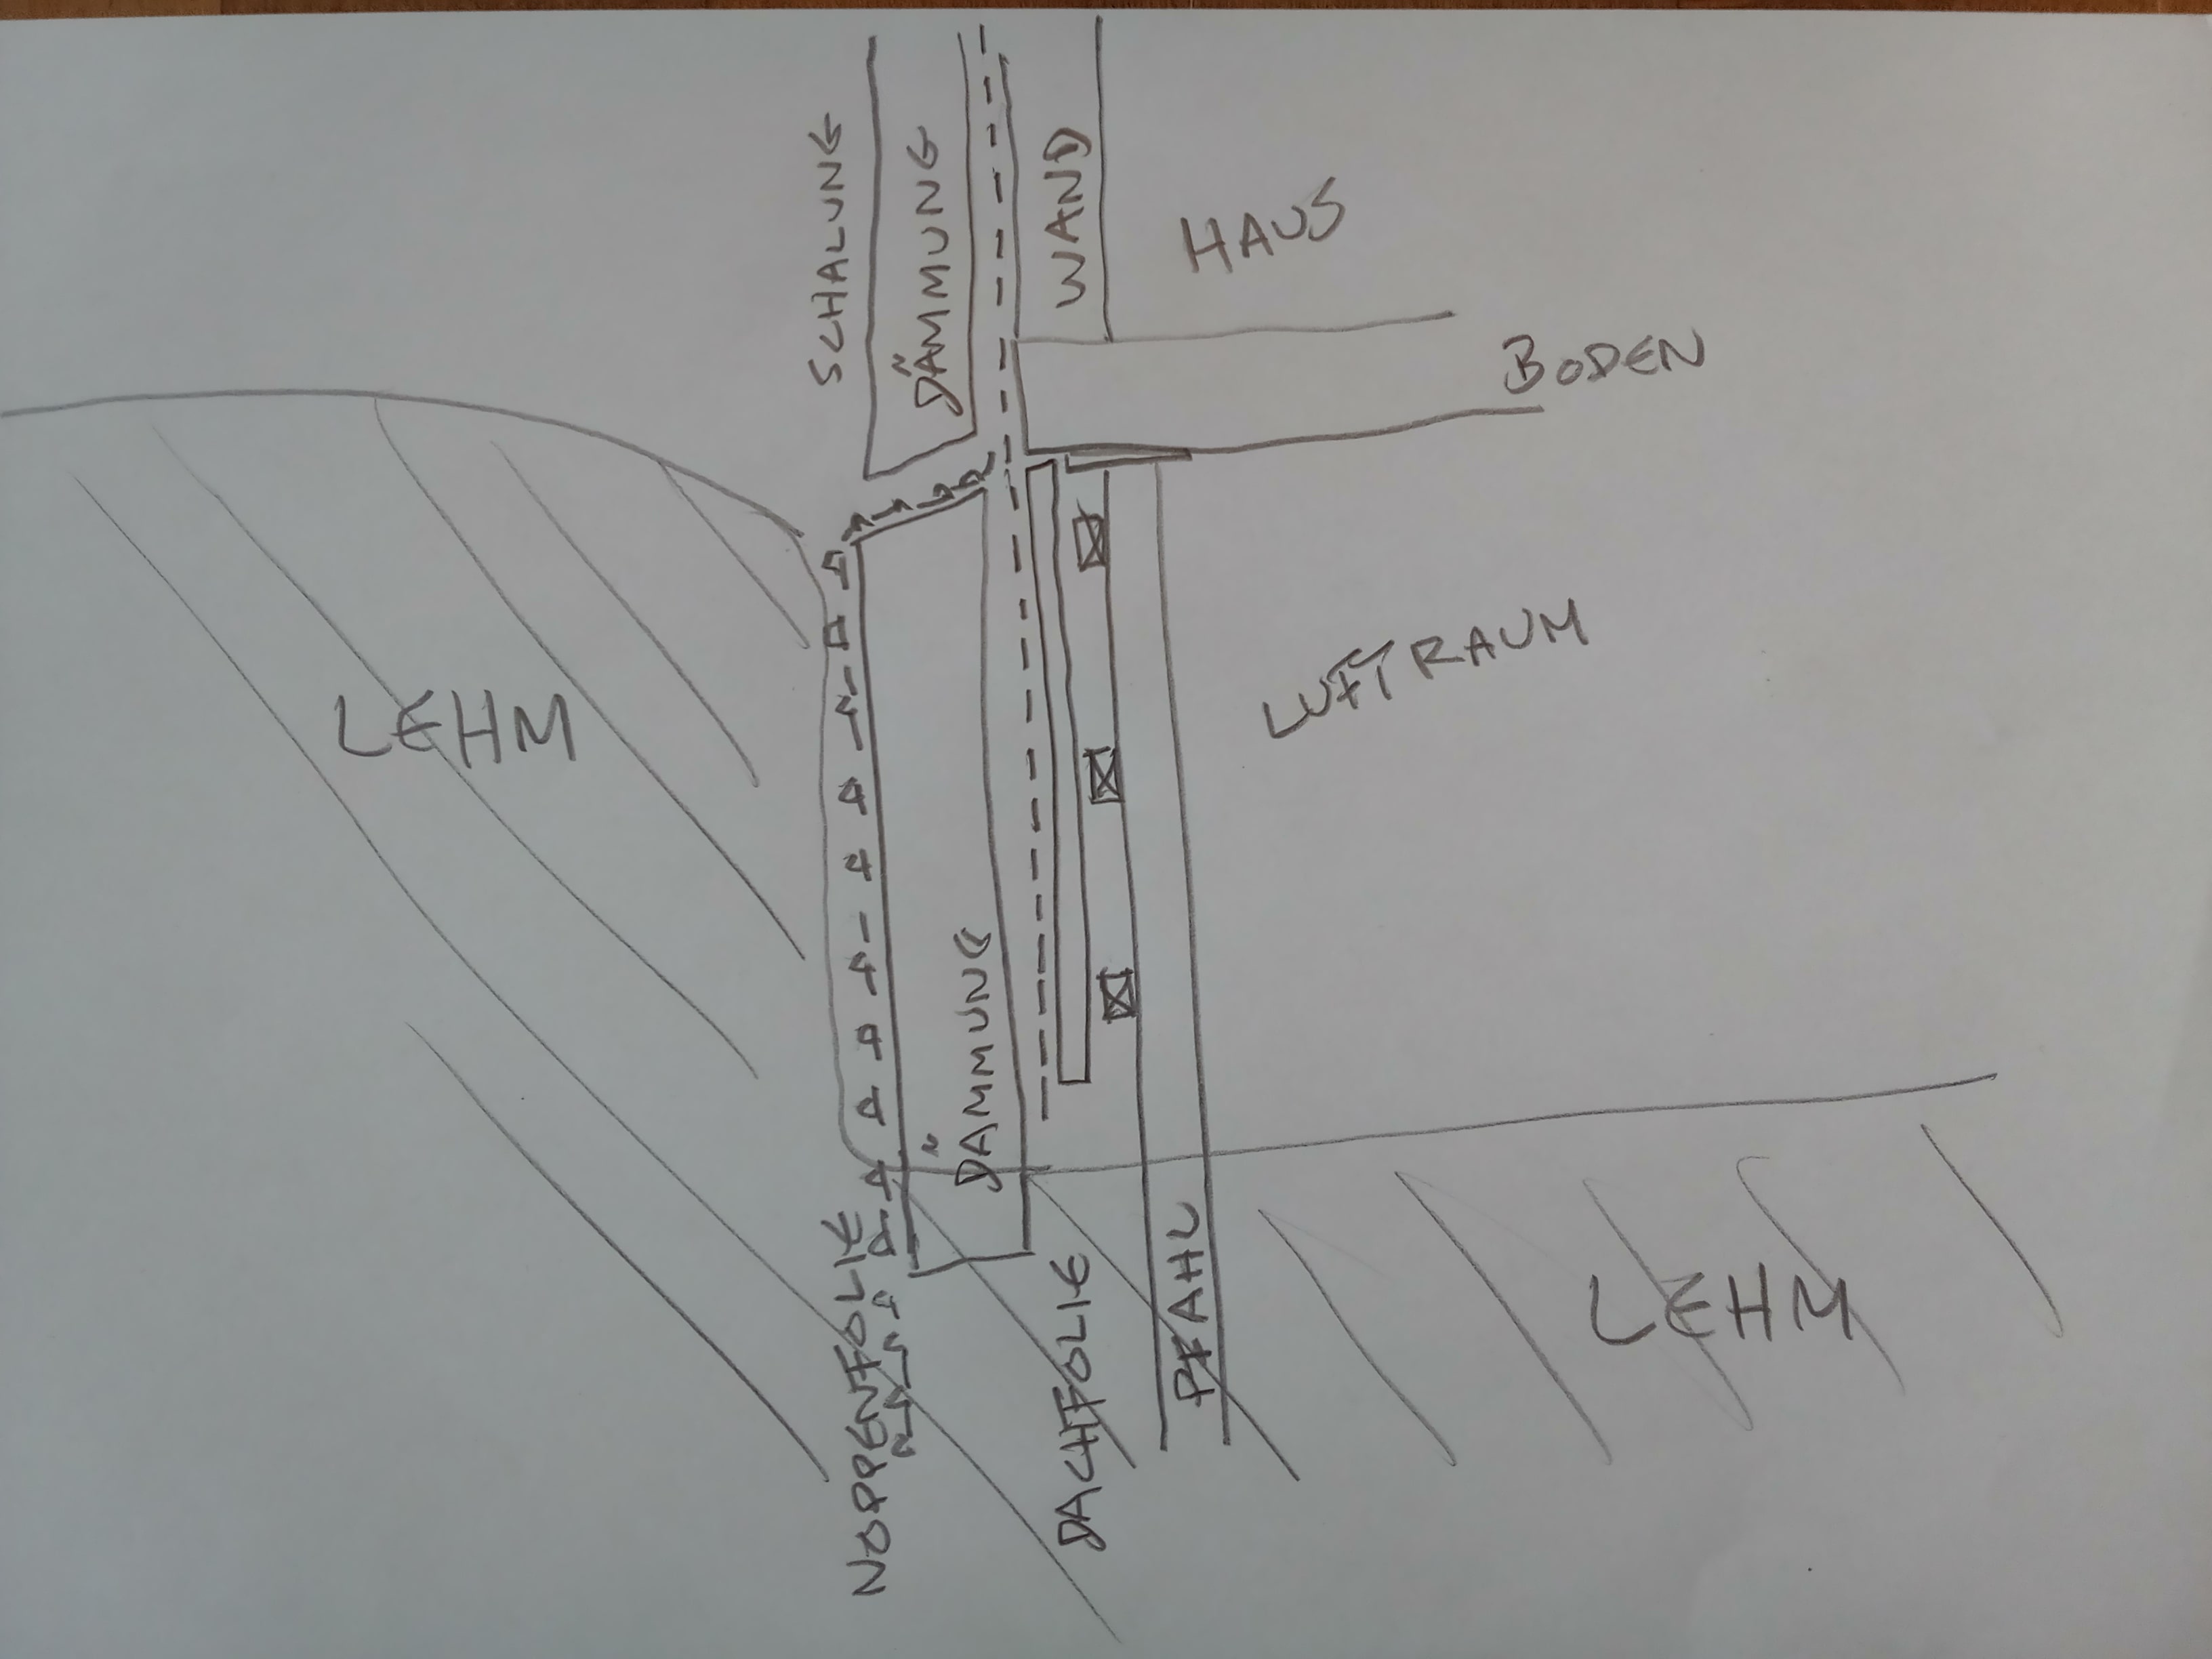 SCHALUNG
DÄMMUNG
WAND
HAUS
BODEN
LEHM
LUFTRAUM
DÄMMUNG
NOPPENFOLIE
DACHFOLIE
PFAHL
LEHM